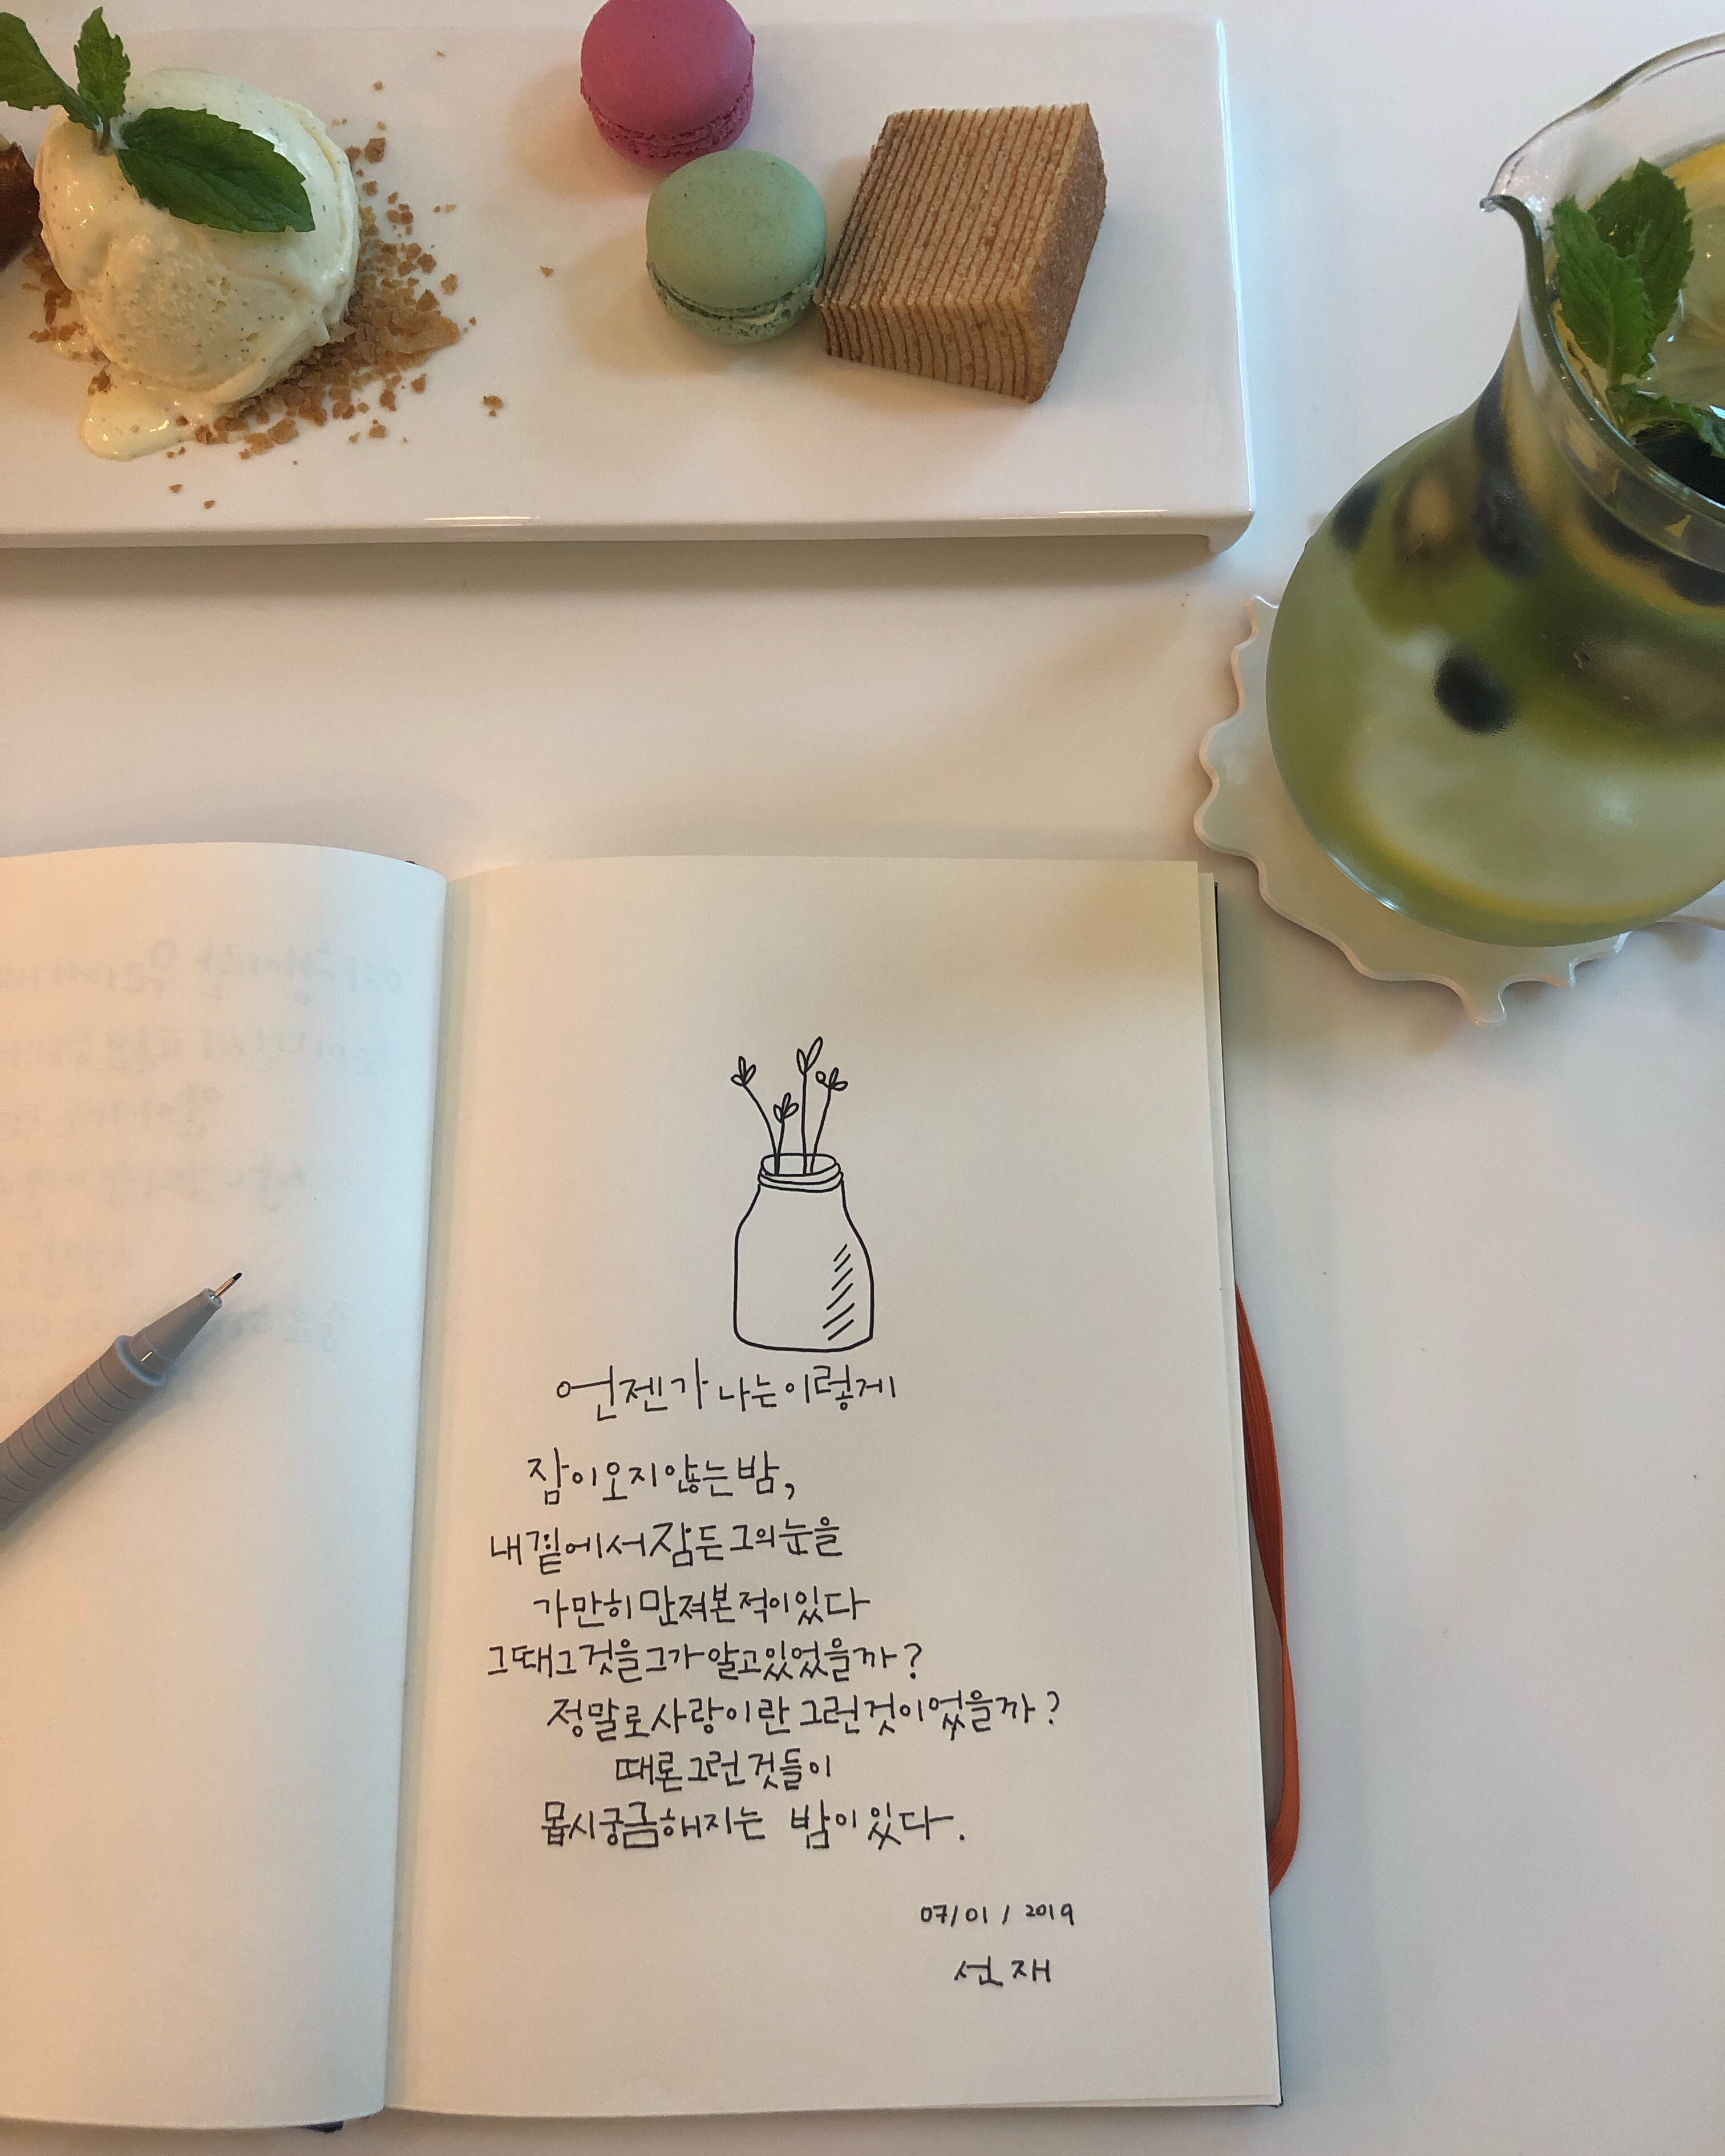 언젠가 나는 이렇게
잠이 오지 않는 밤,
내 곁에서 잠든 그의 눈을
가만히 만져본 적이 있다
그때 그것을 그가 알고 있었을까?
정말로 사랑이란 그런 것이었을까?
때론 그런 것들이
몹시 궁금해지는 밤이 있다.
07/01/2019
선재